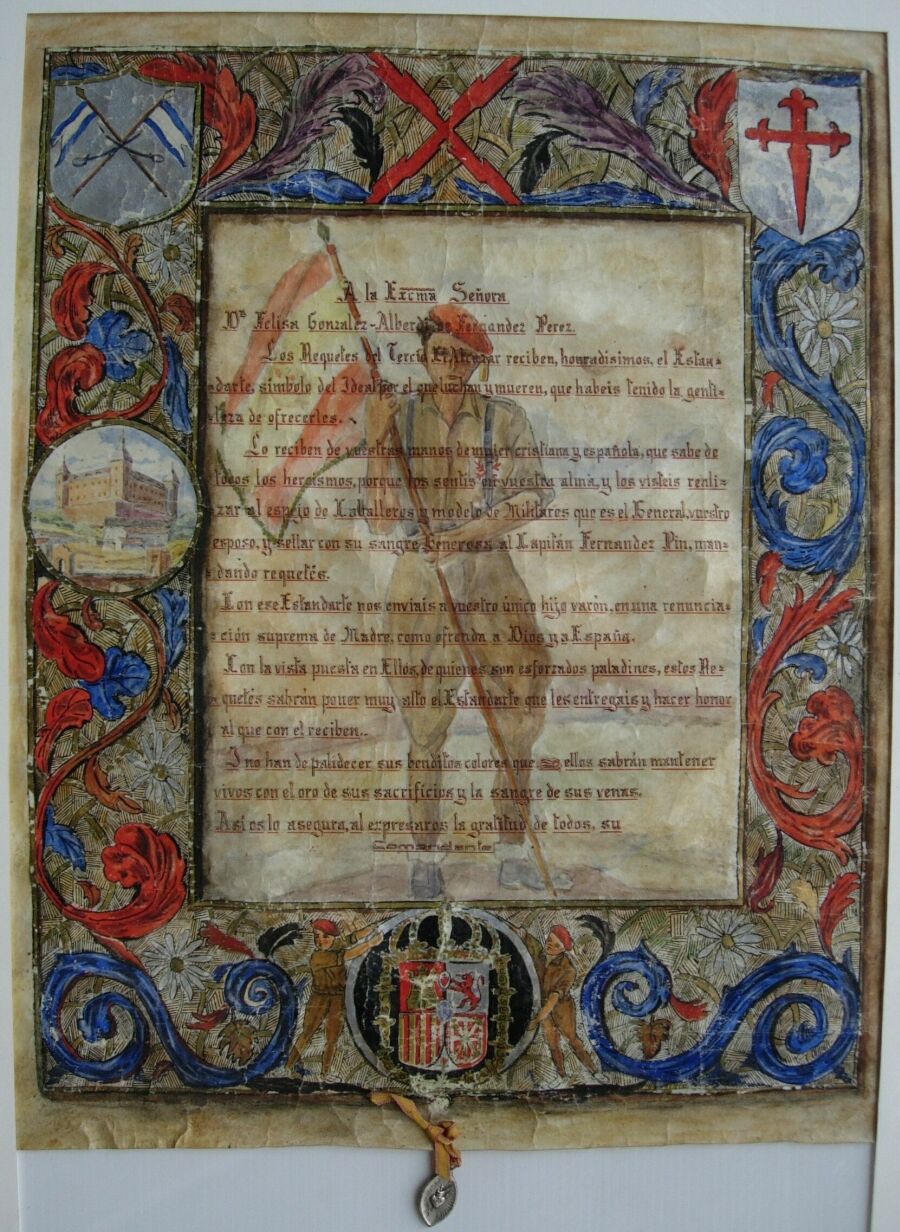 A la Excma Señora
Dª Felisa Gonzalez-Alberdi de Fernandez Perez.
Los Requetes del Tercio El Alcazar reciben, honradisimos, el Estan-
darte, simbolo del Ideal por el que luchan y mueren, que habeis tenido la genti-
leza de ofrecerles.
Lo reciben de vuestras manos de mujer cristiana y española, que sabe de
todos los heroismos, porque los sentis en vuestra alma, y los visteis reali-
zar al espejo de Caballeros y modelo de Militares que es el General, vuestro
esposo, y sellar con su sangre Generosa al Capitán Fernandez Pin, man-
dando requetés.
Con ese Estandarte nos enviais a vuestro único hijo varón, en una renuncia-
ción suprema de Madre, como ofrenda a Dios y a España.
Con la vista puesta en Ellos, de quienes son esforzados paladines, estos Re-
quetés sabrán poner muy alto el Estandarte que les entregais y hacer honor
al que con el reciben..
I no han de palidecer sus benditos colores que ellos sabrán mantener
vivos con el oro de sus sacrificios y la sangre de sus venas.
Asi os lo asegura, al expresaros la gratitud de todos, su
Comandante